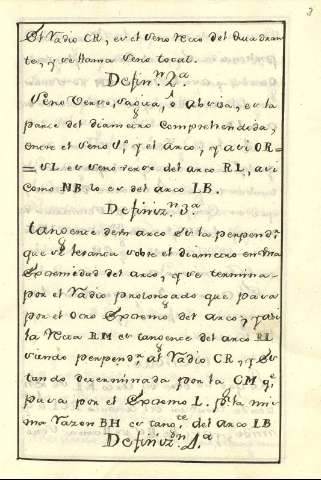 3
El Radio CR, es el seno recto del Quadran
te, y se llama seno total.
Defin.n 2.a
Seno Verso, sagita, ó abusa, es la
parte del diametro comprehendida,
entre el seno r.o y el arco, y asi OR=
=SL es seno verso del arco RL, asi
como NB lo es del arco LB.
Definiz.n 3.a
tangente de un arco es la perpend.r
que se lebanta sobre el diametro en una
Extremidad del arco, y se termina
por el Radio prolongado que pasa
por el otro Extremo del arco; y asi
la recta RM es tangente del arco RL
siendo perpend.r al Radio CR, y es
tando determinada por la CM q.e
pasa por el Extremo L. por la mis
ma razon BH es tang.te del arco LB
Definiz.on 4.a